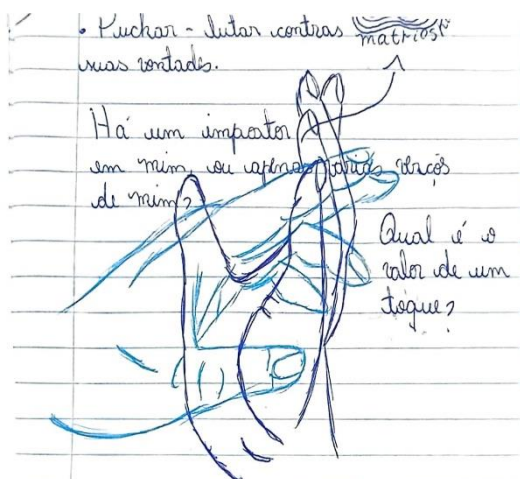 • Puchar - lutar contras
matriost
suas vontades.
Há um impostor
em mim, ou apenas várias verços
de mim?
Qual é o
valor de um
toque?